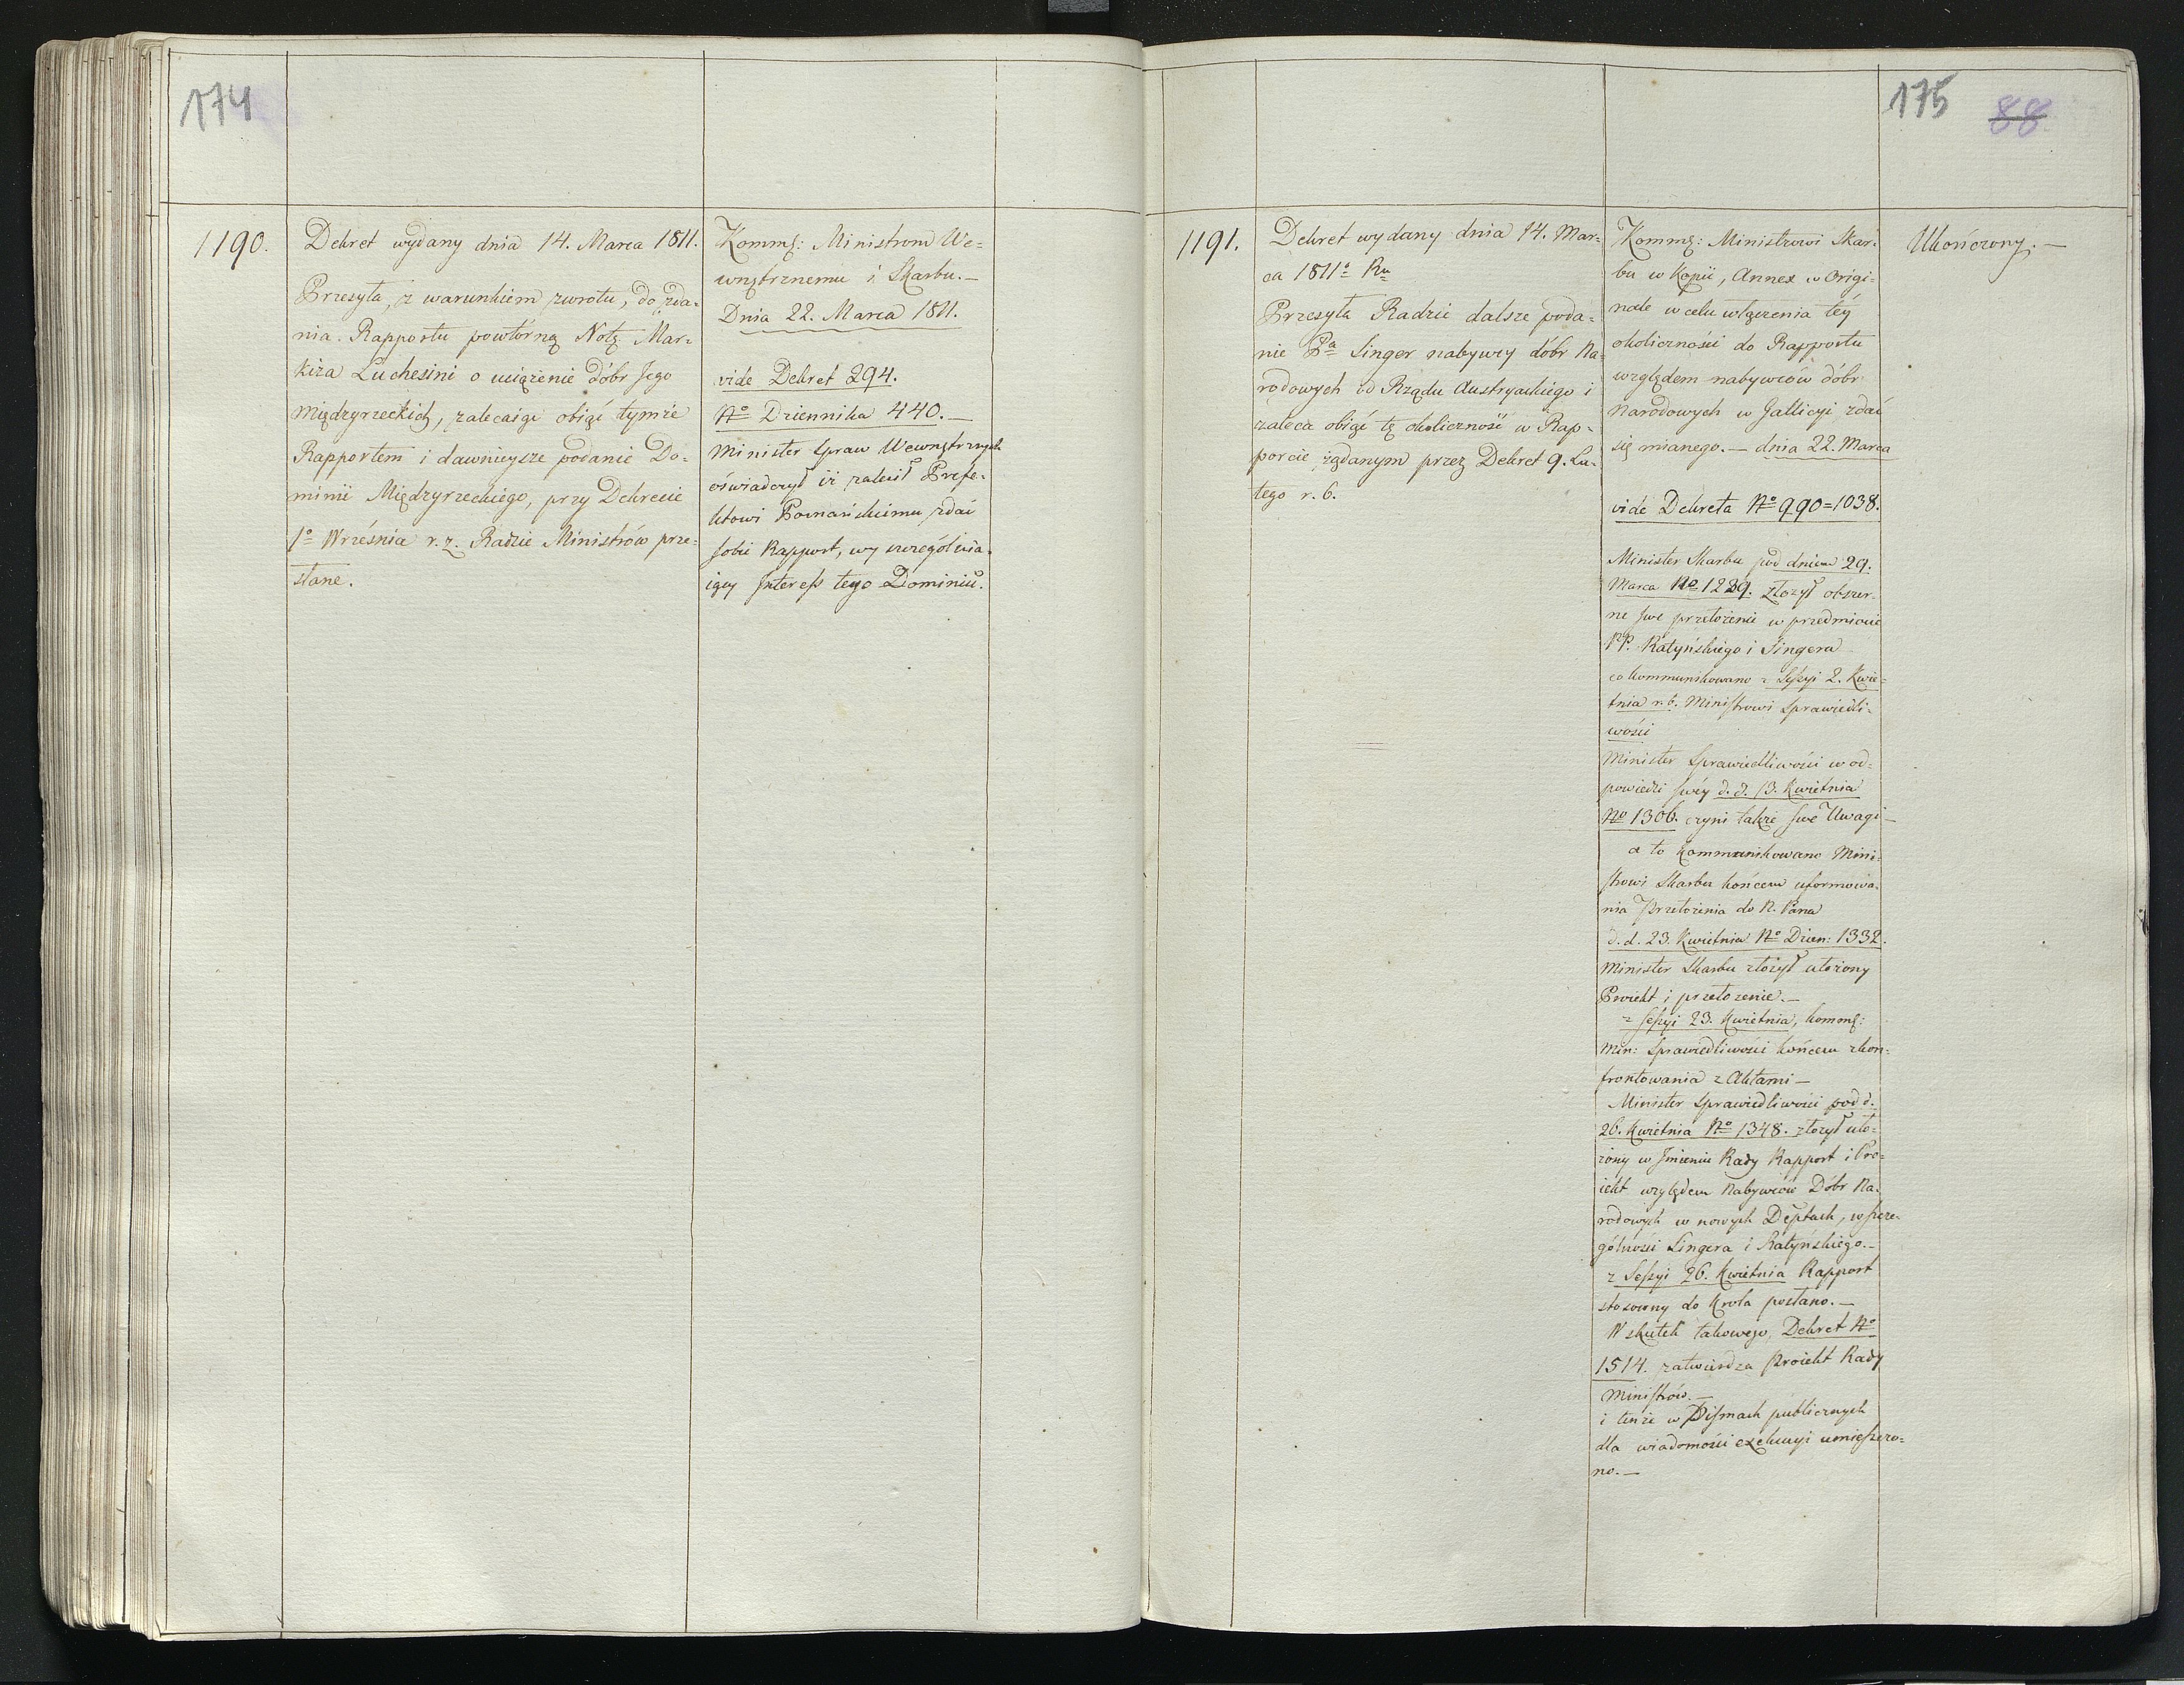 174
1190.
Dekret wydany dnia 14. Marca 1811.
Przesyła, z warunkiem zwrotu, do zda-
nia Rapportu powtórną Notę Mar-
kiza Luchesini o uciążenie dóbr Jego
Międzyrzeckich, zalecaiąc obiąć tymże
Rapportem i dawnieysze podanie Do-
minii Międzyrzeckiego, przy Dekrecie
1o Września r. z. Radzie Ministrów prze-
słane.
Kommę: Ministrom We-
wnętrznemu i Skarbu.—
Dnia 22. Marca 1811.
vide Dekret 294.
No Dziennika 440.—
Minister Spraw Wewnętrznych
oświadczył iż zalecił Prefe-
ktowi Poznańskiemu zdać
sobie Rapport, wyszczególnia-
iący Interess tego Dominiu.
175
88
1191.
Dekret wydany dnia 14. Mar-
ca 1811o Ru
Przesyła Radzie dalsze poda-
nie Pa Singer nabywcy dóbr Na-
rodowych od Rządu Austryackiego i
zaleca obiąć tę okoliczność w Rap-
porcie żądanym przez Dekret 9. Lu-
tego r. b.
Kommę: Ministrowi Skar-
bu w Kopii, Annex w Origi-
nale w celu włączenia téy
okoliczności do Rapportu
względem nabywców dóbr
Narodowych w Gallicyi zdać
się mianego.— dnia 22. Marca
vide Dekreta No 990=1038.
Minister Skarbu pod dniem 29.
Marca No 1229. złożył obszer-
ne swe przełożenie w przedmiocie
PP. Ratyńskiego i Singera
co kommunikowano z Sessyi 2. Kwie-
tnia r. b. Ministrowi Sprawiedli-
wości
Minister Sprawiedliwości w od-
powiedzi swéy d. d. 13. Kwietnia
No 1306. czyni także swe Uwagi—
a to kommunikowano Mini-
strowi Skarbu końcem uformowa-
nia Przełożenia do N. Pana
d. d. 23. Kwietnia No Dzien: 1332.
Minister Skarbu złożył ułożony
Proiekt i przełożenie.—
z Sessyi 23. Kwietnia, kommę:
Min: Sprawiedliwości końcem skon-
frontowania z Aktami—
Minister Sprawiedliwości pod d.
26. Kwietnia No 1348. złożył uło-
żony w Imieniu Rady Rapport i Pro-
iekt względem Nabywców Dóbr Na-
rodowych w nowych Deptach, w szcze-
gólności Singera i Ratyńskiego.—
z Sessyi 26. Kwietnia Rapport
stosowny do Króla posłano.—
W skutek takowego, Dekret No
1514. zatwierdza Proiekt Rady
Ministrów.—
i tenże w Pismach publicznych
dla wiadomości exekucyi umieszczo-
no.—
Ukończony.—